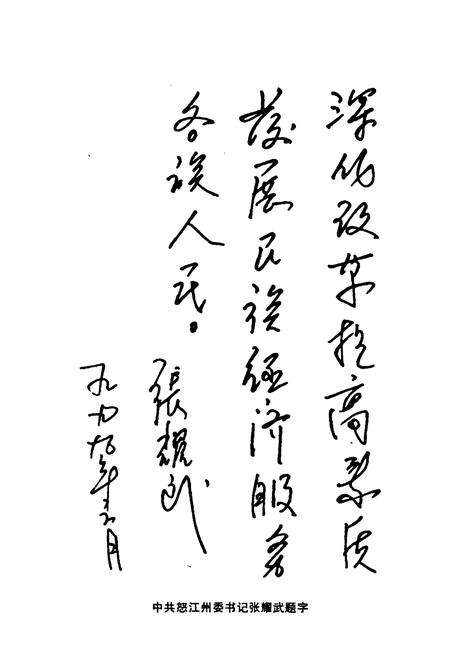 深化改革提高素质
发展民族经济服务
各族人民。
張耀武
一九九九年三月
中共怒江州委书记张耀武题字